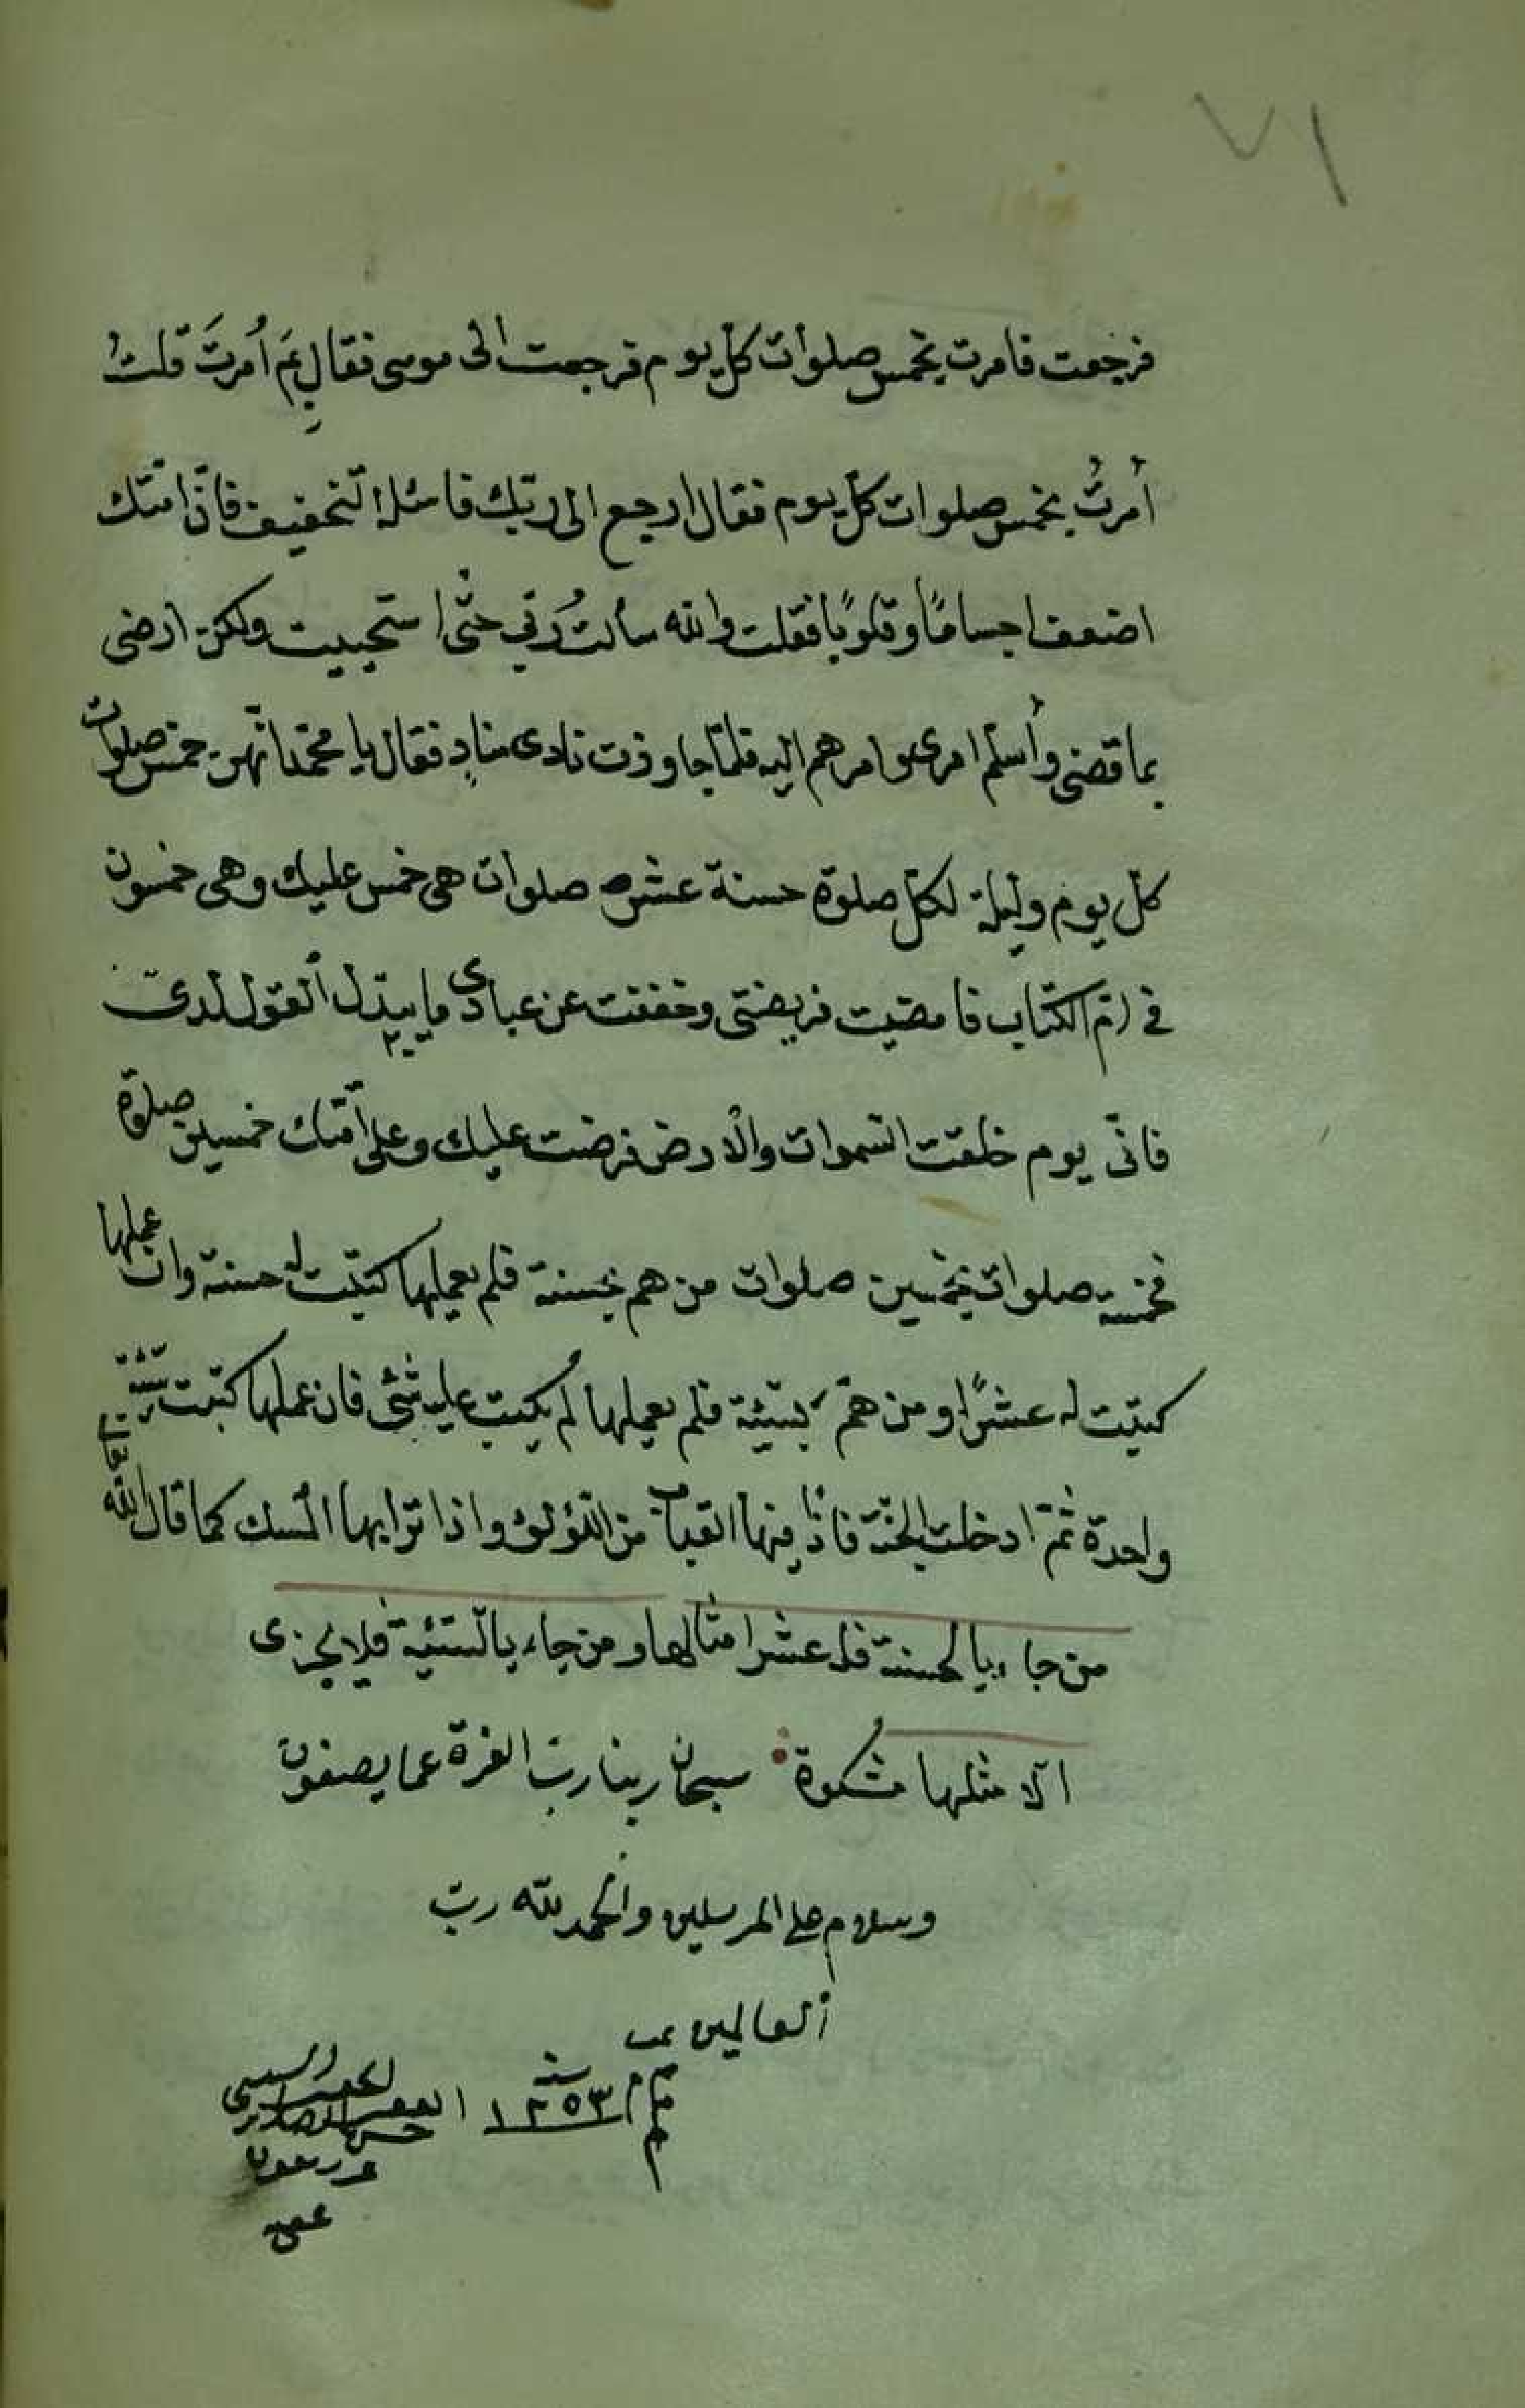 ٧١
فرجعت فامرت بخمس صلوات كل يوم فرجعت الى موسى فقال بِمَ اُمرتَ قلتُ
اُمرتُ بخمس صلوات كل يوم فقال ارجع الى ربّك فاسئله التخفيف فانّ امّتك
اضعف اجسامًا وقلوبًا فقلت والله سألتُ رَبّي حتّى استحييت ولكن ارضى
بما قضى وأسلم امرى وامرهم اليه فلمّا جاوزت نادى منادٍ فقال يا محمّد انّهن خمس صلوات
كل يوم وليلة لكل صلوة حسنة عشره صلوات هى خمس عليك وهى خمسون
في امّ الكتاب فامضيت فريضتى وخففت عن عبادى ما يبدّل القول لدىّ
فانّى يوم خلقت السّموات والارض فرضت عليك وعلى اُمّتك خمسين صلوة
فخمسة صلوات بخمسين صلوات من هم بحسنة فلم يعملها كتبت له حسنة وان عملها
كتبت له عشرًا ومن همّ بسيّئة فلم يعملها لم يكتب عليه شئ فان عملها كتبت سيّئة
واحدة ثمّ ادخلت الجنّة فاذا فيها القباب من اللؤلؤ واذا ترابها المسك كما قال الله تعالى
من جاء بالحسنة فله عشر امثالها ومن جاء بالسّيئة فلا يجزى
الّا مثلها مشكوة سبحان ربنا ربّ العزة عما يصفون
وسلام على المرسلين والحمد لله ربّ
العالمين
تم م سنة ١٢٥٣